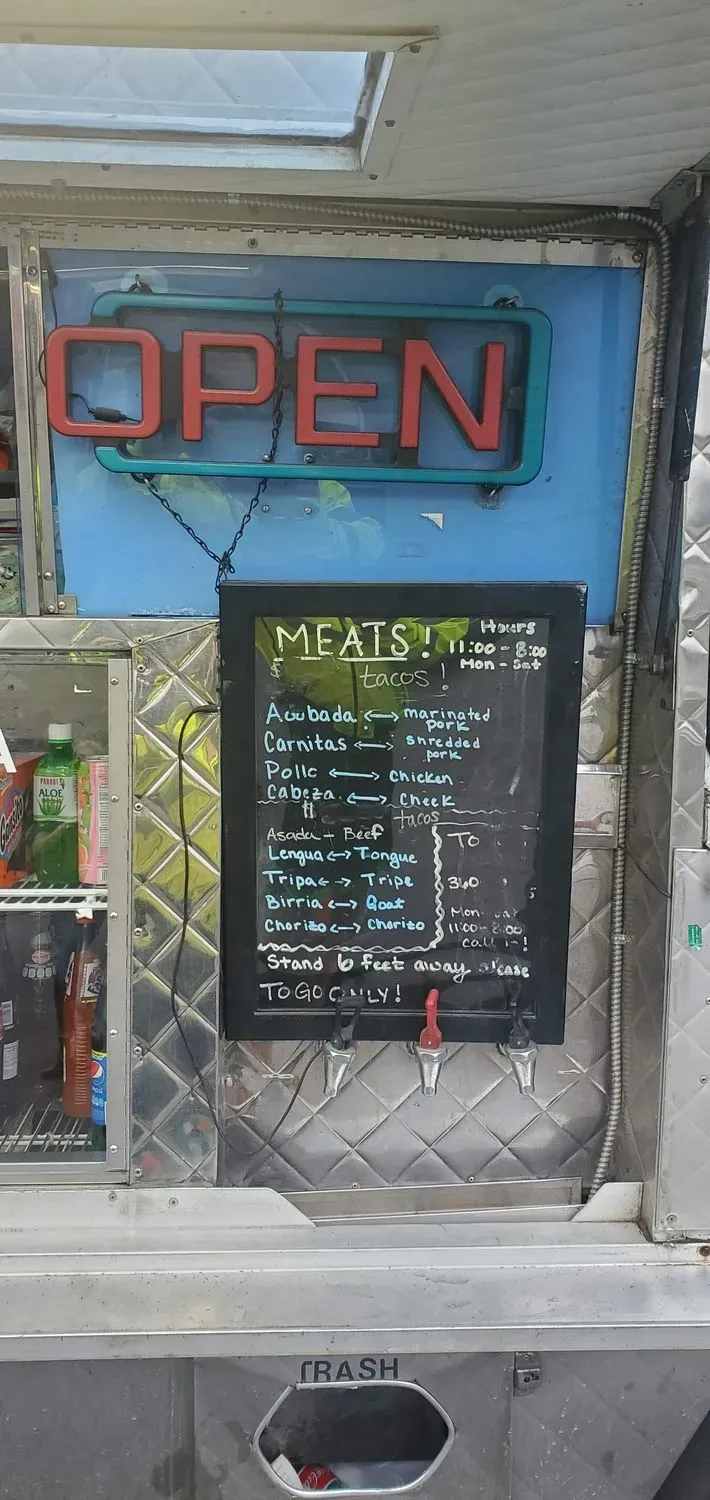 OPEN
MEATS!
Hours
11:00 - 8:00
Mon - Sat
$
tacos!
Adobada ↔ marinated pork
Carnitas ↔ shredded pork
Pollo ↔ Chicken
Cabeza ↔ Cheek
$ tacos
Asada - Beef
Lengua ↔ Tongue
Tripa ↔ Tripe
Birria ↔ Goat
Chorizo ↔ Chorizo
To
360
Mon-
11:00 - 8:00
call in!
Stand 6 feet away please
TO GO ONLY!
PARROT
ALOE
TRASH